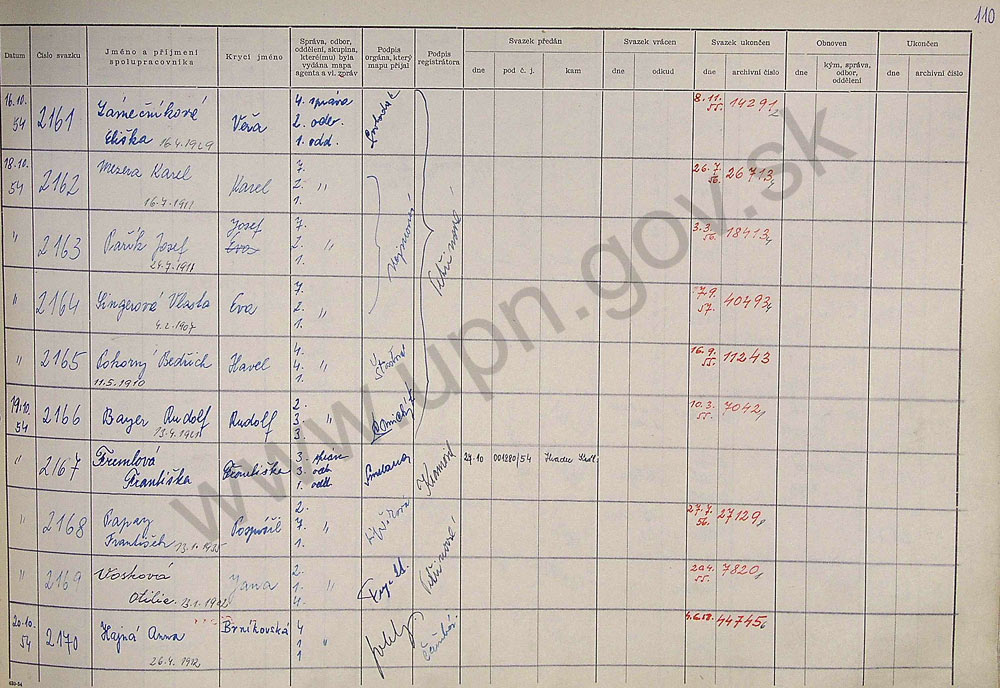 110
Datum Číslo svazku Jméno a příjmení spolupracovníka Krycí jméno Správa, odbor, oddělení, skupina, které(mu) byla vydána mapa agenta a vl. zpráv Podpis orgána, který mapu přijal Podpis registrátora Svazek předán Svazek vrácen Svazek ukončen Obnoven Ukončen
dne pod č. j. kam dne odkud dne archivní číslo dne kým, správa, odbor, oddělení dne archivní číslo
16.10. 54 2161 Zámečníková Eliška 16.4.1929 Věra 4. správa 2. odbor. 1. odd. 8.11. 55. 14291
18.10. 54 2162 Mezera Karel 16.7.1911 Karel 7. 2. " 1. 26.7. 56. 26713
" 2163 Pařík Josef 24.7.1911 Josef Eva 7. 2. " 1. 3.3. 56. 18413
" 2164 Singerová Vlasta 4.2.1907 Eva 7. 2. " 1. 7.9. 57. 40493
" 2165 Pokorný Bedřich 11.5.1910 Havel 4. 4. " 1. Šťastná 16.9. 55. 11243
19.10. 54 2166 Bayer Rudolf Rudolf 2. 3. " 3. 10.3. 55. 7042
" 2167 Fremlová Františka Františka 3. správ 3. odb 1. odd Smetana 29.10 001280/54 Hradec Král.
" 2168 Papay František 13.1.1935 Pospíšil 2. 7. " 1. 27.7. 56. 27129
" 2169 Vosková Otilie Jana 2. 1. " 4. 20.4. 55. 7820
20.10. 54 2170 Hajná Anna 26.4.1912 Brníkovská 4 1 " 1 4.6.58. 44745
www.upn.gov.sk